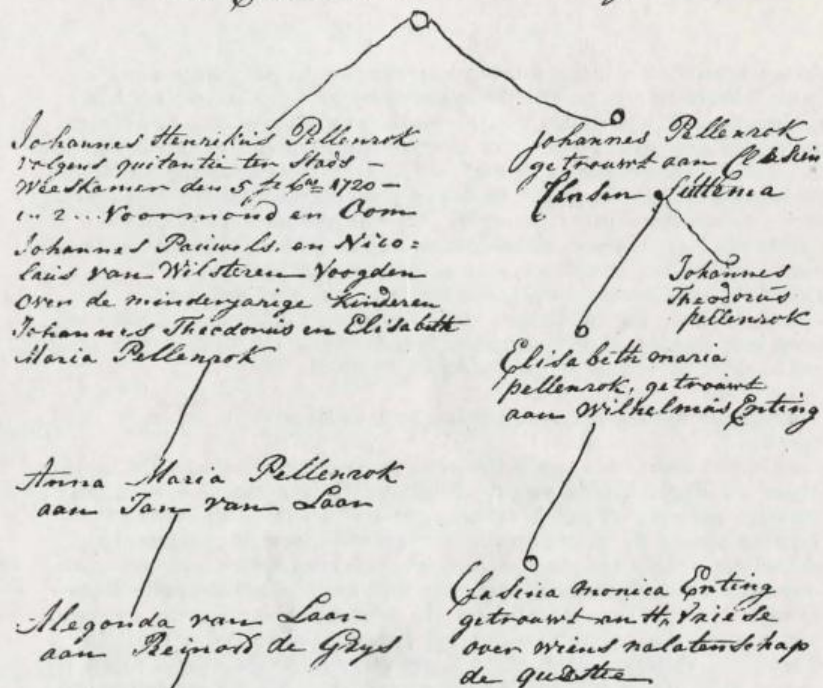 Johannes Henrikus Pellenrok
volgens quitantie ter Stads -
Weeskamer den 5 1720 -
Voormond en Oom
Johannes Pauwels. en Nico=
laus van Wilsteren Voogden
over de minderjarige Kinderen
Johannes Theodorus en Elisabeth
Maria Pellenrok
Anna Maria Pellenrok
aan Jan van Laar
Alegonda van Laar
aan Reinord de Grys
Johannes Pellenrok
getrouwt aan
Suttema
Johannes
Theodorus
pellenrok
Elisabeth maria
pellenrok, getrouwt
aan Wilhelmus Enting
Clasina monica Enting
getrouwt an H. Vriese
over wiens nalatenschap
de questie